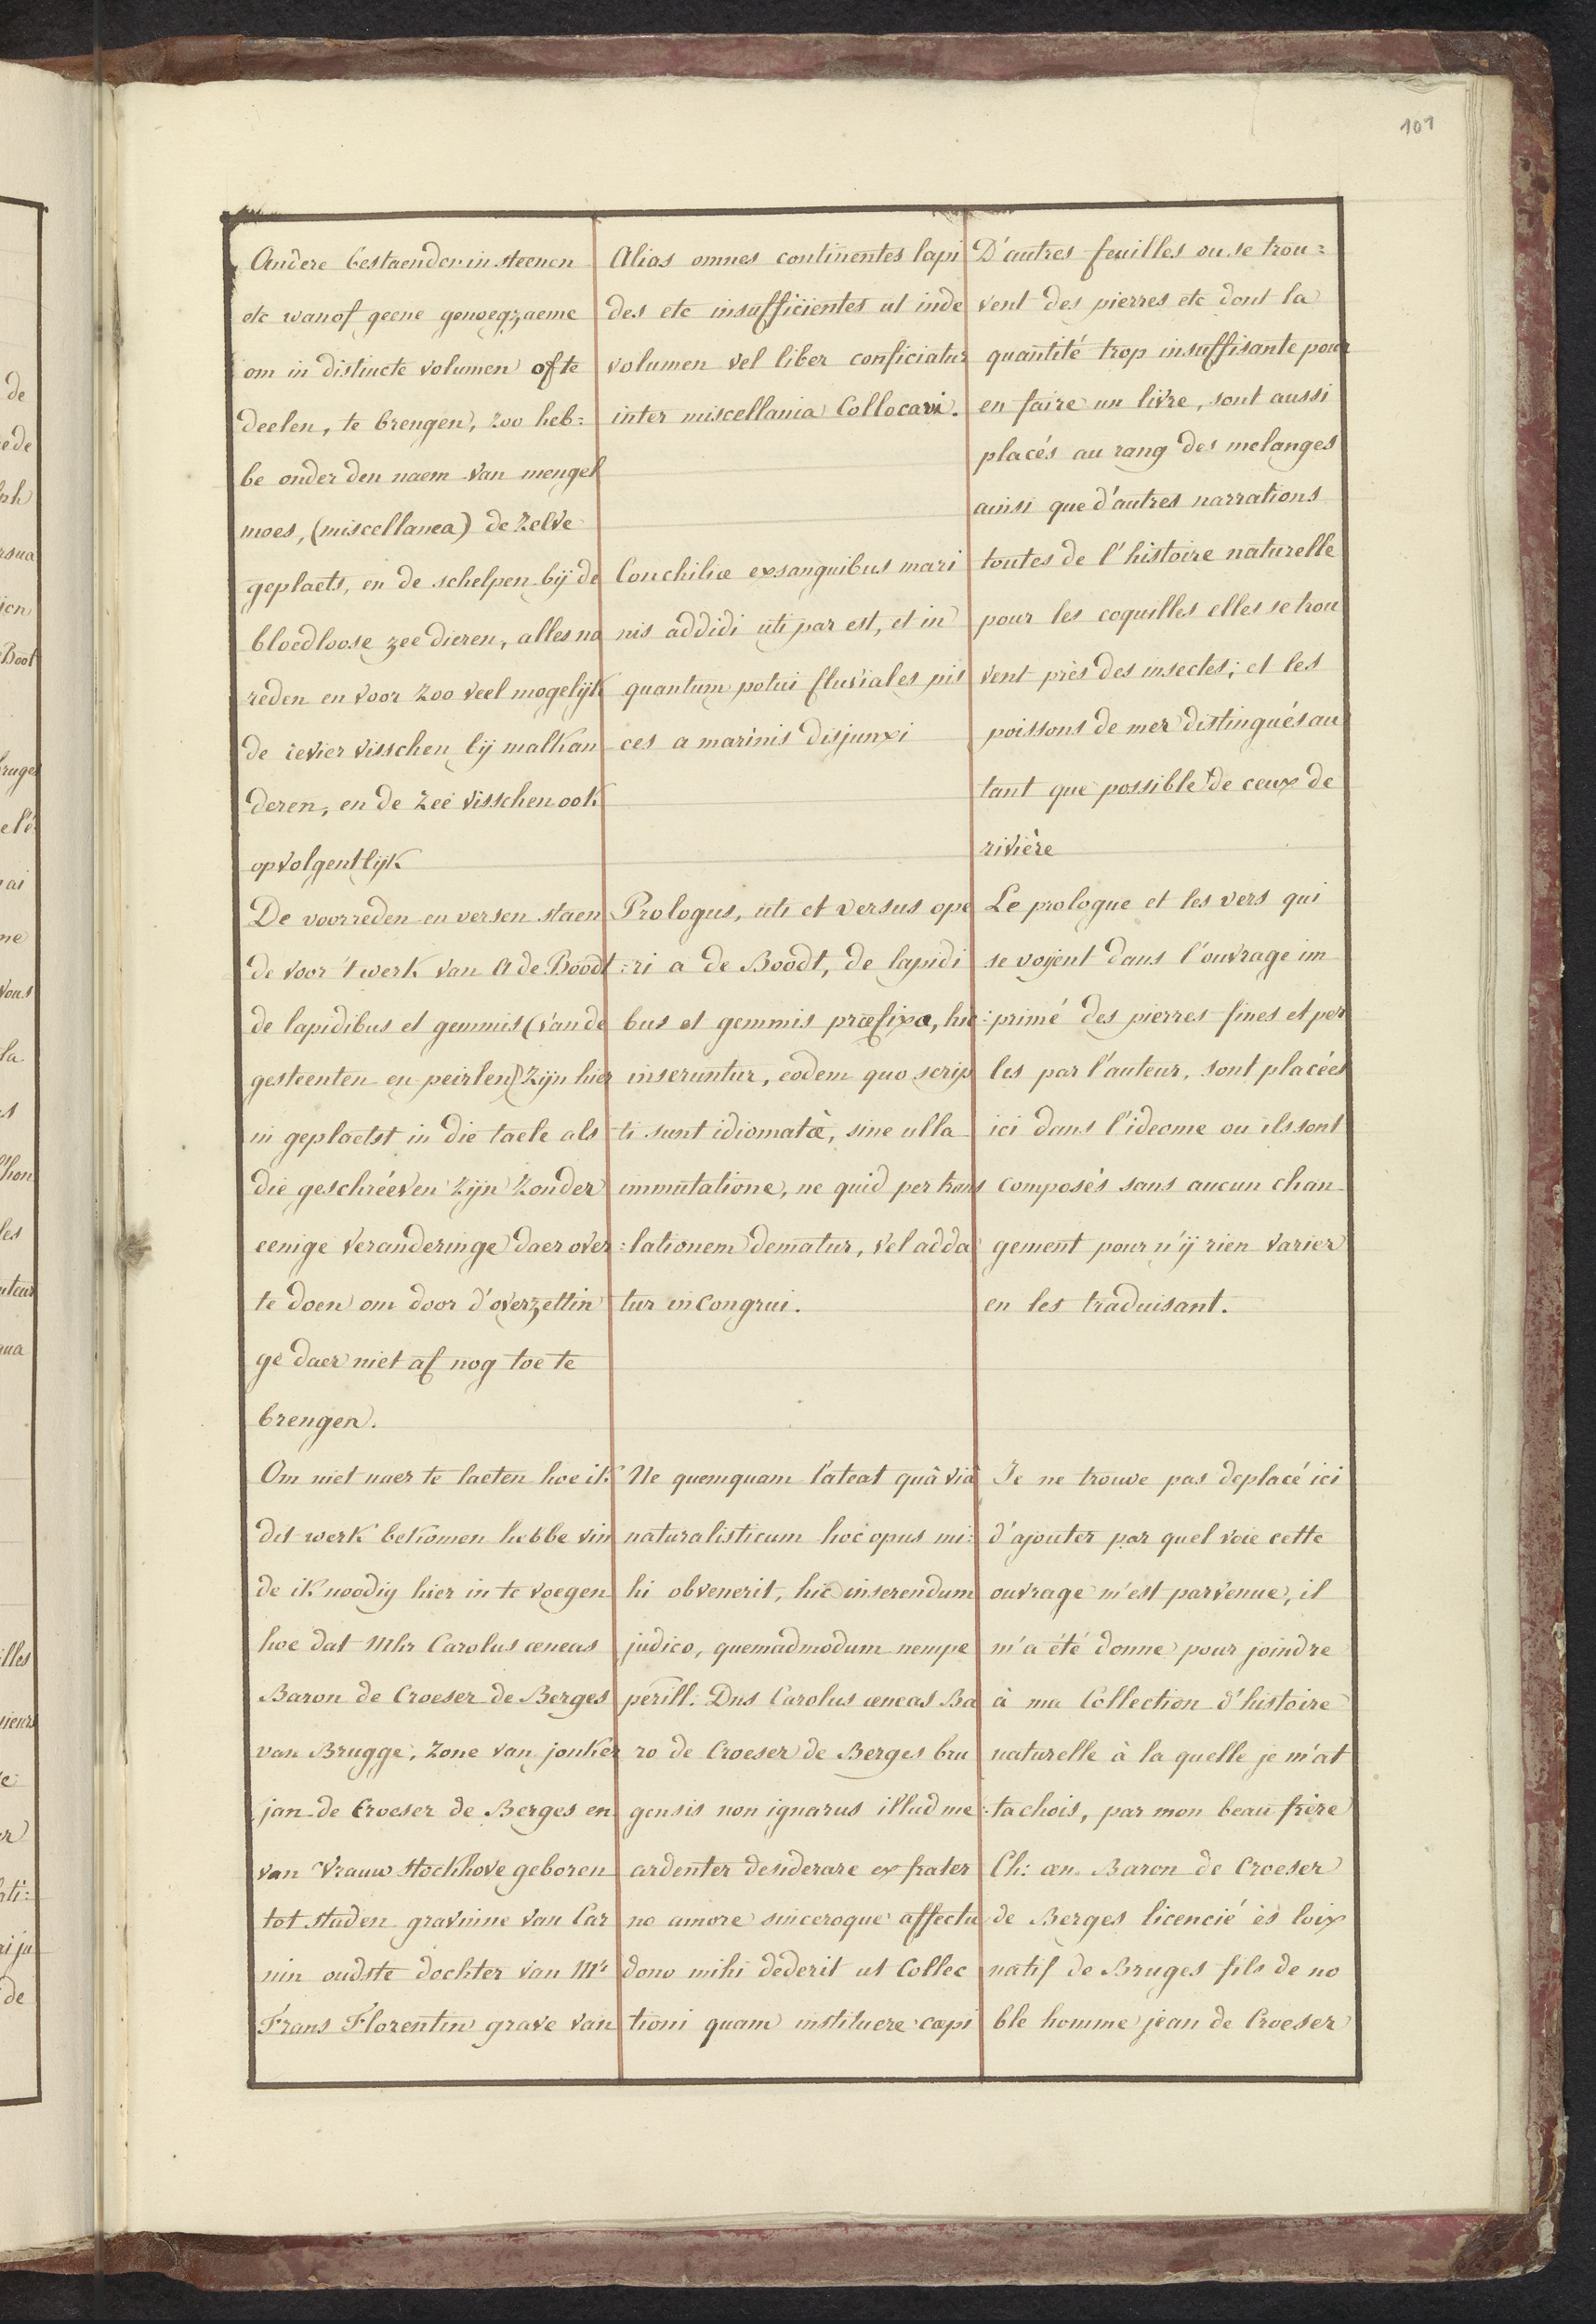 101
Andere bestaender in steenen
etc wanof geene genoegzaeme
om in distincte volumen ofte
deelen, te brengen, zoo heb=
be onder den naem van mengel
moes, (miscellanea) de zelve
geplaets, en de schelpen bij de
bloedloose zee dieren, alles na
reden en voor zoo veel mogelijk
de revier visschen bij malkan
deren, en de zee visschen ook
opvolgentlijk
De voorreden en versen staen
de voor 't werk van A de Boodt
de lapidibus et gemmis (van de
gesteenten en peirlen) zijn hier
in geplaetst in die taele als
die geschréeven zijn zonder
eenige veranderinge daer over
te doen om door d'overzettin
ge daer niet af nog toe te
brengen.
Om niet naer te laeten hoe ik
dit werk bekomen hebbe vin
de ik noodig hier in te voegen
hoe dat Mhr Carolus æneas
Baron de Croeser de Berges
van Brugge, zone van jonker
jan de Croeser de Berges en
van Vrauw Stockhove geboren
tot Staden gravinne van Car
nin oudste dochter van Mr
Frans Florentin grave van
Alias omnes continentes lapi
des etc insufficientes ut inde
volumen vel liber conficiatur
inter miscellania Collocavi.
Conchiliæ exsanguibus mari
nis addidi uti par est, et in
quantum potui fluviales pis
ces a marinis disjunxi
Prologus, uti et versus ope
:ri a de Boodt, de lapidi
bus et gemmis præfixa, hic
inseruntur, eodem quo scrip
ti sunt idiomatæ, sine ulla
immutatione, ne quid per trans
:lationem dematur, vel adda
tur incongrui.
Ne quemquam lateat quâ viâ
naturalisticum hoc opus mi:
hi obvenerit, hic inserendum
judico, quemadmodum nempe
perill. Dns Carolus æneas Ba
ro de Croeser de Berges bru
gensis non ignarus illud me
ardenter desiderare ex frater
no amore sinceroque affectu
dono mihi dederit ut Collec
tioni quam instituere cæpi
D'autres feuilles ou se trou=
vent des pierres etc dont la
quantité trop insuffisante pour
en faire un livre, sont aussi
placés au rang des melanges
ainsi que d'autres narrations
toutes de l'histoire naturelle
pour les coquilles elles se trou
vent près des insectes; et les
poissons de mer distingués au
tant que possible de ceux de
rivière
Le prologue et les vers qui
se voyent dans l'ouvrage im
:primé des pierres fines et per
les par l'auteur, sont placées
ici dans l'ideome ou ils sont
composés sans aucun chan
gement pour n'ÿ rien varier
en les traduisant.
Je ne trouve pas deplacé ici
d'ajouter par quel voie cette
ouvrage m'est parvenue, il
m'a été donne pour joindre
à ma Collection d'histoire
naturelle à la quelle je m'at
:tachois, par mon beau frère
Ch: æn. Baron de Croeser
de Berges licencié ès loix
natif de Bruges fils de no
ble homme jean de Croeser